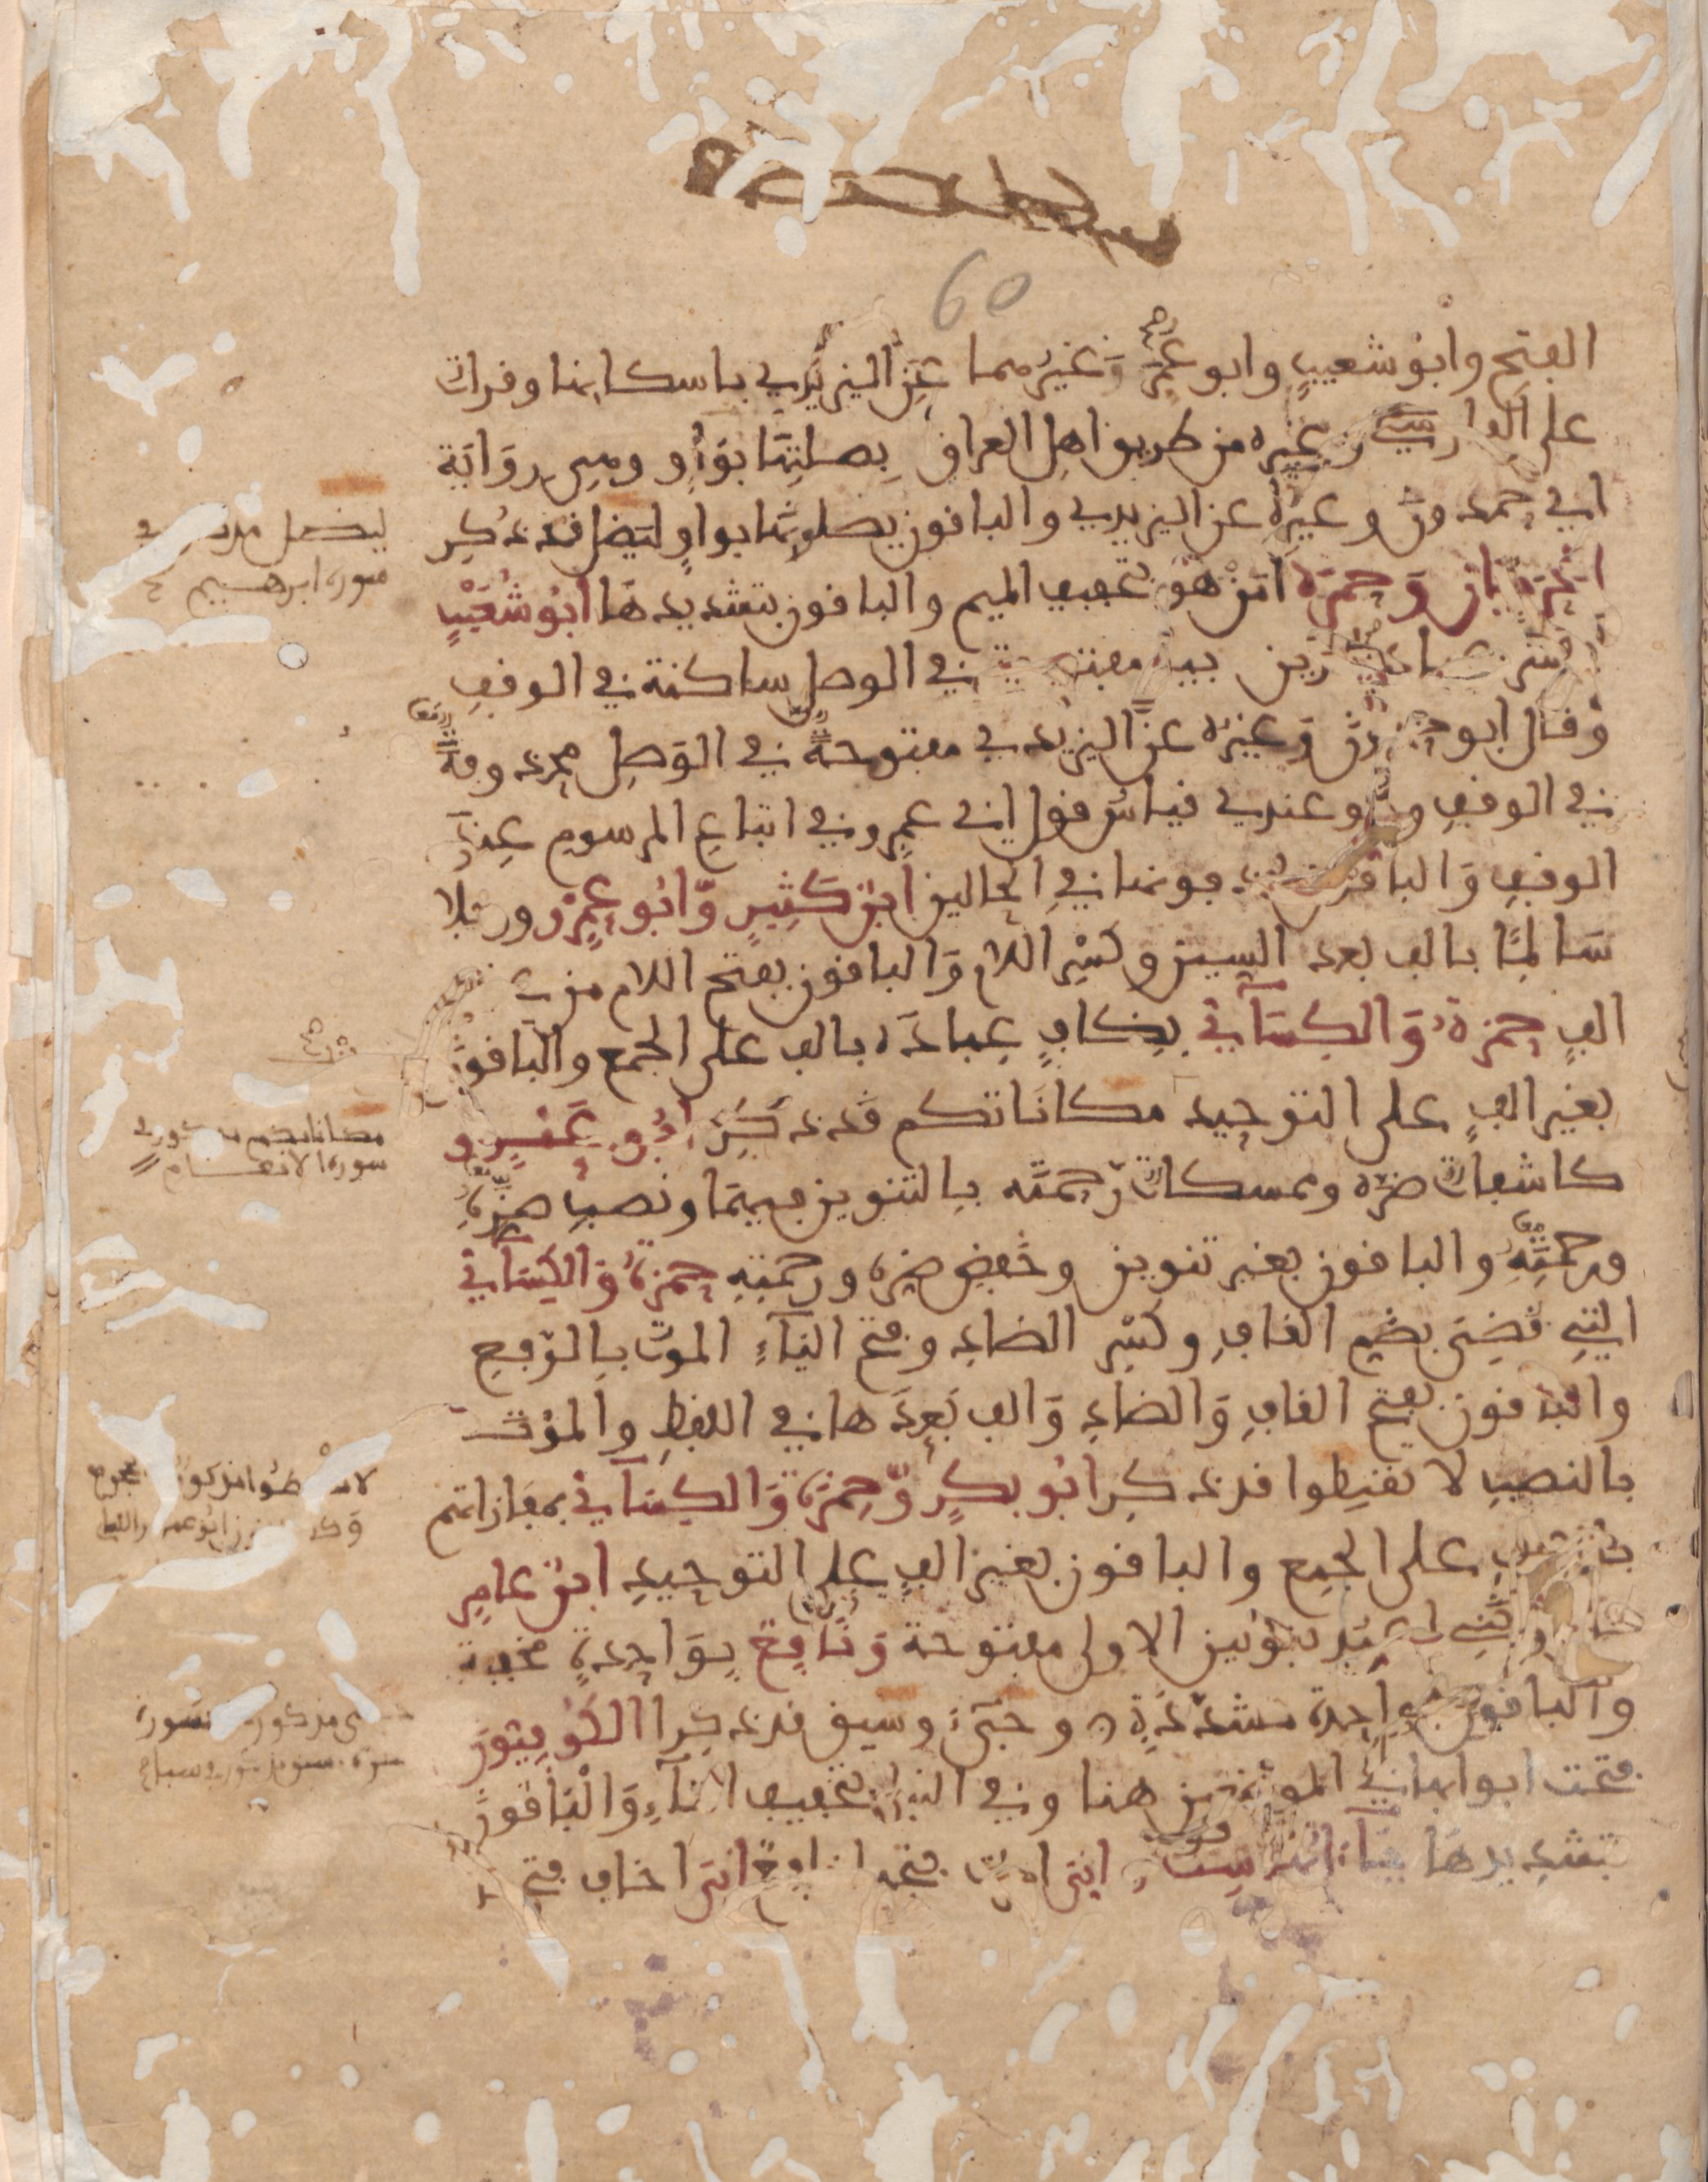 60
الفتح وابو شعيب وابو عمر وغيرهما عن اليزيدي باسكانها وقرات
على الفارسي وغيره من طريق اهل العراق بصلتها بواو وهي رواية
ابي حمدون وغيره عن اليزيدي والباقون يصلونها بواو ليضل قد ذكر
الحرميان وحمزة امن هو بتخفيف الميم والباقون بتشديدها ابو شعيب
فبشر عبادي الذين بياء مفتوحة في الوصل ساكنة في الوقف
وقال ابو حمدون وغيره عن اليزيدي مفتوحة في الوصل محذوفة
في الوقف وهو عندي قياس قول ابي عمرو في اتباع المرسوم عند
الوقف والباقون يحذفونها في الحالين ابن كثير وابو عمرو ورجلا
سالما بالف بعد السين وكسر اللام والباقون بفتح اللام من غير
الف حمزة والكسائي بكاف عباده بالف على الجمع والباقون
بغير الف على التوحيد مكاناتكم قد ذكر ابو عمرو
كاشفات ضره وممسكات رحمته بالتنوين فيهما ونصب ضره
ورحمته والباقون بغير تنوين وخفض ضره ورحمته حمزة والكسائي
التي قضي بضم القاف وكسر الضاد وفتح الياء الموت بالرفع
والباقون بفتح القاف والضاد والف بعدها في اللفظ والموت
بالنصب لا تقنطوا قد ذكر ابو بكر وحمزة والكسائي بمفازاتهم
بالف على الجمع والباقون بغير الف على التوحيد ابن عامر
تامرونني اعبد بنونين الاولى مفتوحة ونافع بواحدة مخففة
والباقون بواحدة مشددة وجيء وسيق قد ذكرا الكوفيون
فتحت ابوابها في الموضعين هنا وفي النبا بتخفيف التاء والباقون
بتشديدها ياءاتها ست اني امرت فتحها نافع اني اخاف فتح
ليضل مذكور في
سورة ابرهيم
مكاناتكم مذكور في
سورة الانعام
لا تقنطوا مذكور في الحجر
مذكور سورة